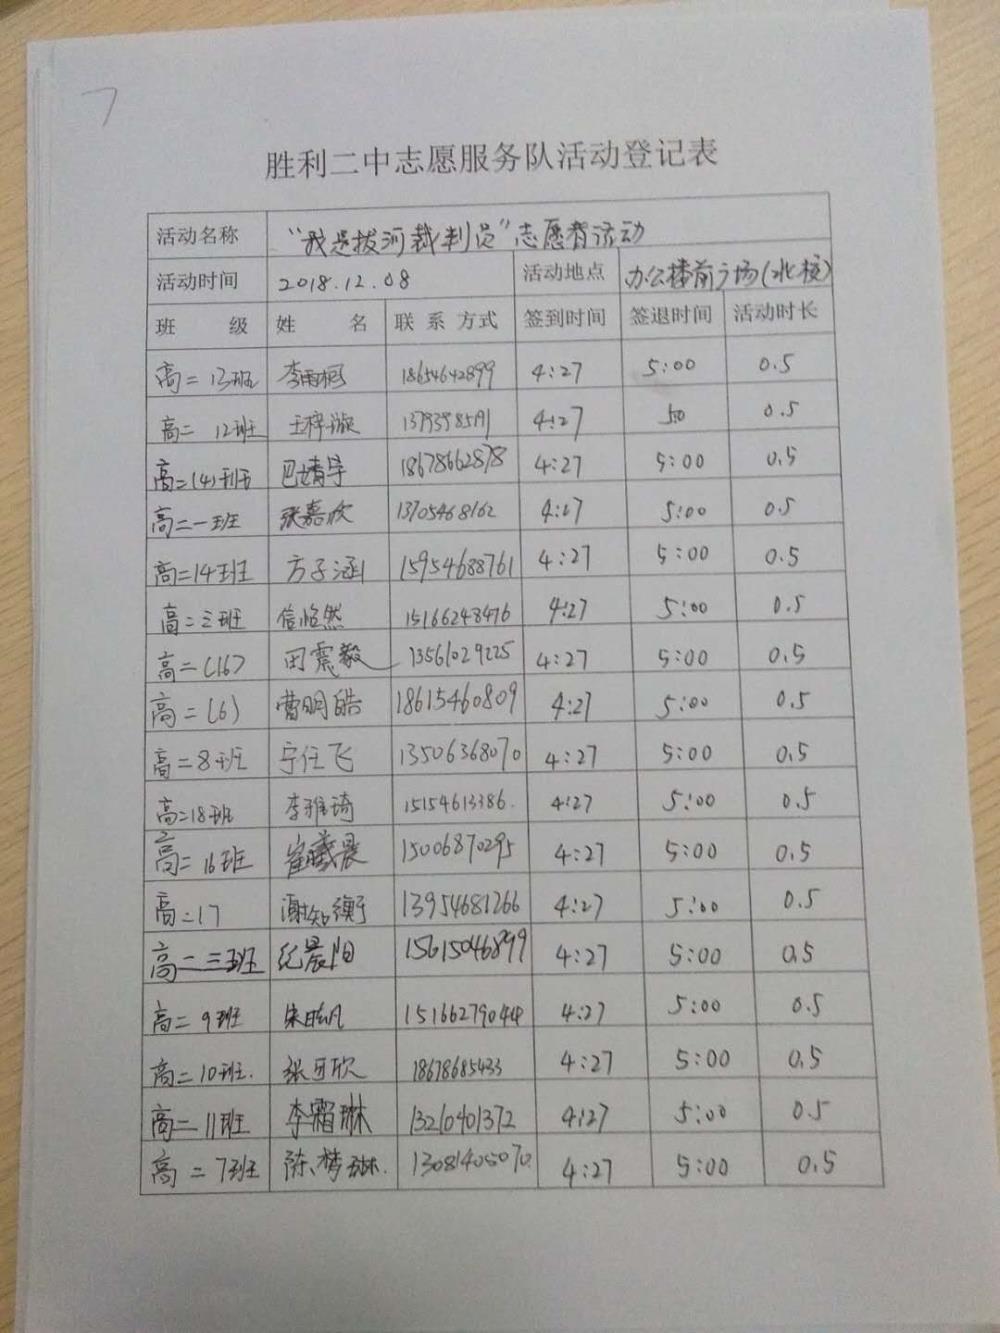 7
胜利二中志愿服务队活动登记表
活动名称 “我是拔河裁判员”志愿者活动
活动时间 2018.12.08 活动地点 办公楼前广场(北校)
班 级 姓 名 联系方式 签到时间 签退时间 活动时长
高二 13班 李雨桐 18654642899 4:27 5:00 0.5
高二 12班 王梓漩 4:27 0.5
高二(4)班 巴婧宇 18678662878 4:27 5:00 0.5
高二一班 张嘉欣 13705468162 4:27 5:00 0.5
高二14班 方子涵 15954688761 4:27 5:00 0.5
高二三班 信悠然 15166248476 4:27 5:00 0.5
高二(16) 田震毅 13561029225 4:27 5:00 0.5
高二(6) 曹明皓 18615460809 4:27 5:00 0.5
高二8班 宁任飞 13506368070 4:27 5:00 0.5
高二18班 李雅琦 15154613386. 4:27 5:00 0.5
高二 16班 崔曦晨 15006870295 4:27 5:00 0.5
高二17 谢知衡 13954681266 4:27 5:00 0.5
高二三班 纪晨阳 15615046899 4:27 5:00 0.5
高二 9班 15166279044 4:27 5:00 0.5
高二10班. 张可欣 18678685433 4:27 5:00 0.5
高二 11班 李霜琳 13210401372 4:27 5:00 0.5
高二 7班 陈梦琳. 13081405070. 4:27 5:00 0.5